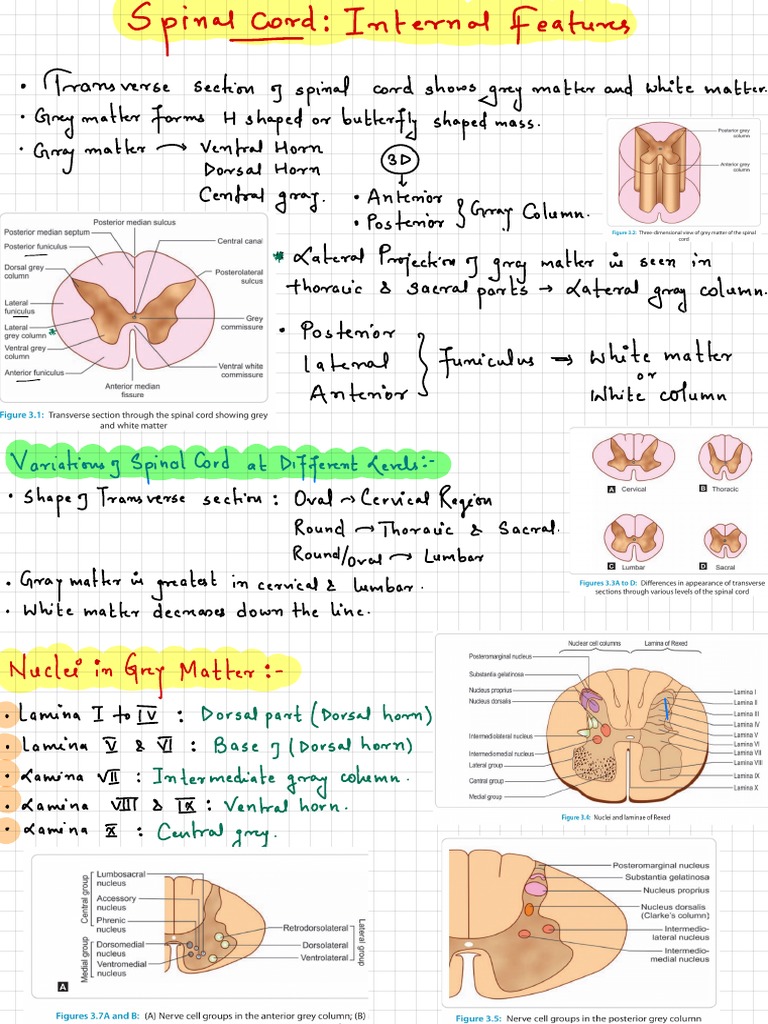 Spinal Cord: Internal Features
• Transverse section of spinal cord shows grey matter and white matter.
• Grey matter forms H shaped or butterfly shaped mass.
• Gray matter → Ventral Horn
Dorsal Horn
Central gray.
3D
• Anterior
• Posterior } Gray Column.
Posterior grey column
Anterior grey column
Figure 3.2: Three-dimensional view of grey matter of the spinal
cord
Posterior median sulcus
Posterior median septum
Posterior funiculus
Dorsal grey
column
Lateral
funiculus
Lateral
grey column *
Ventral grey
column
Anterior funiculus
Central canal
Posterolateral
sulcus
Grey
commissure
Ventral white
commissure
Anterior median
fissure
Figure 3.1: Transverse section through the spinal cord showing grey
and white matter
* Lateral Projection of gray matter is seen in
thoracic & sacral parts → Lateral gray column.
• Posterior
Lateral
Anterior } Funiculus ⇒ White matter
or
White column
Variations of Spinal Cord at Different Levels:-
• Shape of Transverse section : Oval → Cervical Region
Round → Thoracic & Sacral.
Round/Oval → Lumbar
• Gray matter is greatest in cervical & lumbar.
• White matter decreases down the line.
A Cervical
B Thoracic
C Lumbar
D Sacral
Figures 3.3A to D: Differences in appearance of transverse
sections through various levels of the spinal cord
Nuclei in Grey Matter:-
• Lamina I to IV : Dorsal part (Dorsal horn)
• Lamina V & VI : Base of (Dorsal horn)
• Lamina VII : Intermediate gray column.
• Lamina VIII & IX : Ventral horn.
• Lamina X : Central grey.
Nuclear cell columns
Lamina of Rexed
Posteromarginal nucleus
Substantia gelatinosa
Nucleus proprius
Nucleus dorsalis
Intermediolateral nucleus
Intermediomedial nucleus
Lateral group
Central group
Medial group
Lamina I
Lamina II
Lamina III
Lamina IV
Lamina V
Lamina VI
Lamina VII
Lamina VIII
Lamina IX
Lamina X
Figure 3.4: Nuclei and laminae of Rexed
Central group
Lumbosacral
nucleus
Accessory
nucleus
Phrenic
nucleus
Medial group
Dorsomedial
nucleus
Ventromedial
nucleus
Retrodorsolateral
Dorsolateral
Ventrolateral
Lateral group
A
Figures 3.7A and B: (A) Nerve cell groups in the anterior grey column; (B)
Posteromarginal nucleus
Substantia gelatinosa
Nucleus proprius
Nucleus dorsalis
(Clarke's column)
Intermedio-
lateral nucleus
Intermedio-
medial nucleus
Figure 3.5: Nerve cell groups in the posterior grey column